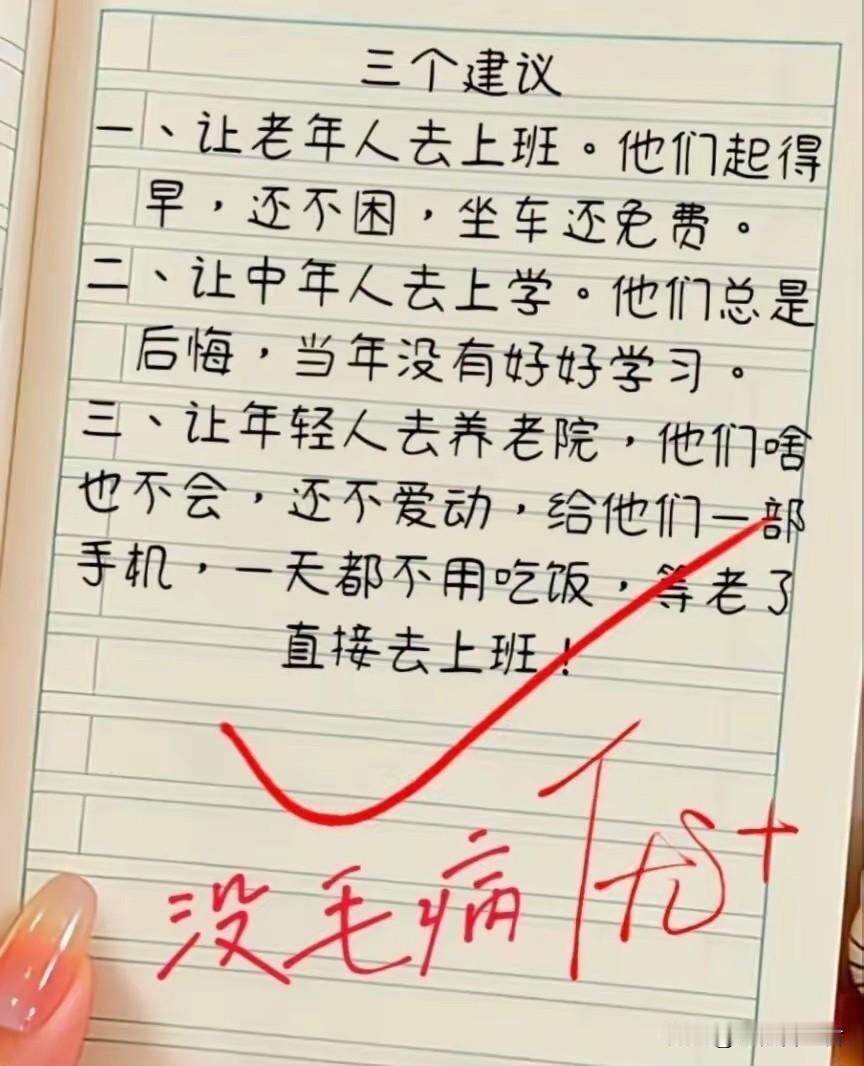 三个建议
一、让老年人去上班。他们起得
早，还不困，坐车还免费。
二、让中年人去上学。他们总是
后悔，当年没有好好学习。
三、让年轻人去养老院，他们啥
也不会，还不爱动，给他们一部
手机，一天都不用吃饭，等老了
直接去上班！
没毛病 优+